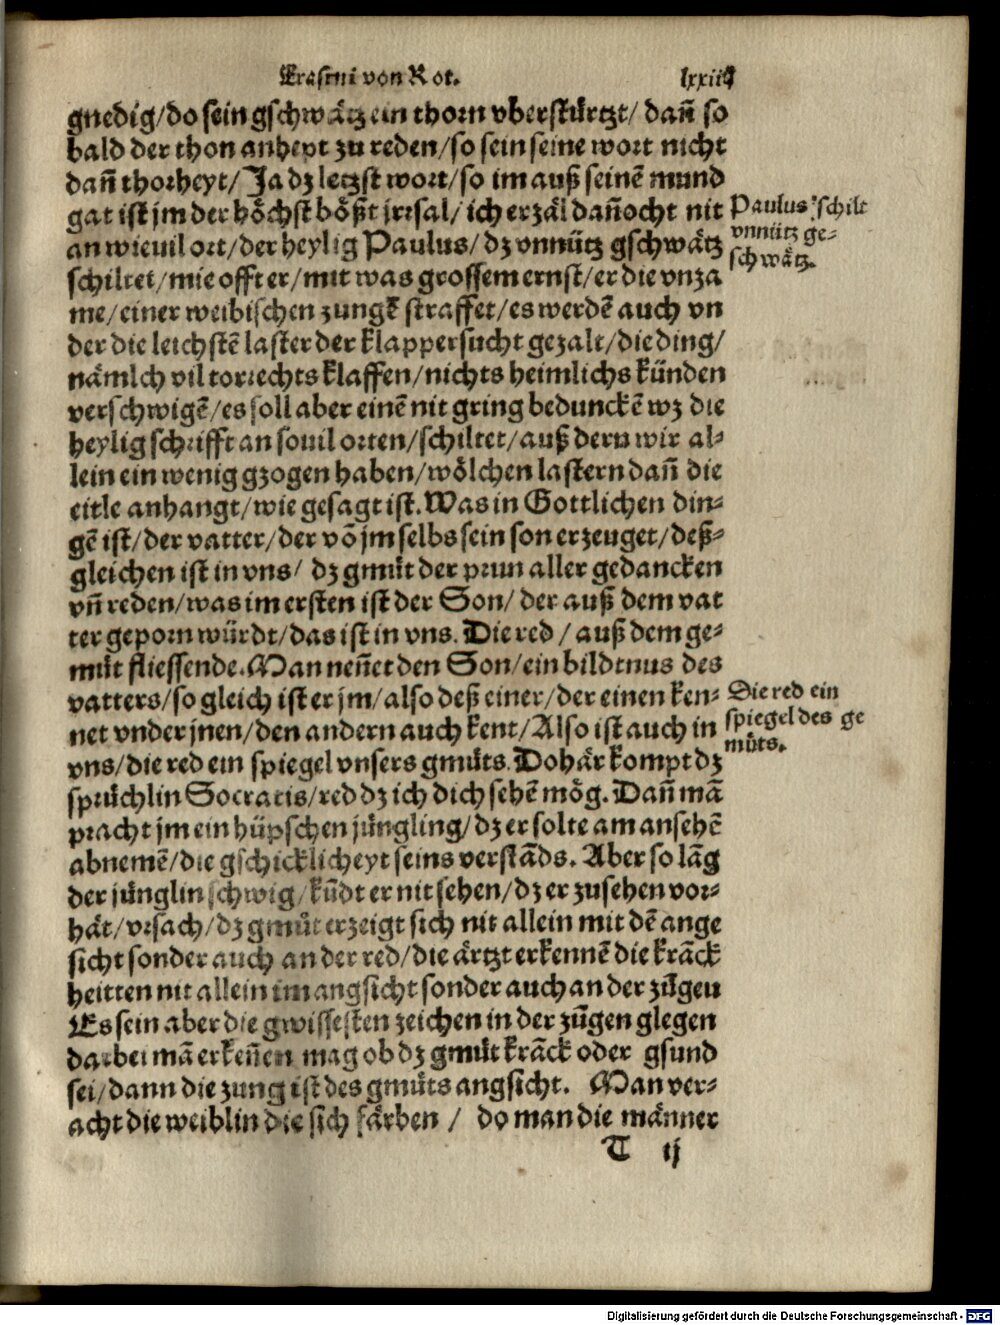 Erasmi von Rot. lxxiiij
gnedig/do sein gschwätz ein thorn vberstürtzt/ dañ so
bald der thon anheyt zu reden/so sein seine wort nicht
dañ thorheyt/ Ja dz letzst wort/so im auß seinē mund
gat ist jm der höchst bößt jrrsal/ ich erzäl dañocht nit
an wieuil ort/der heylig Paulus/dz vnnütz gschwätz
schiltet/mie offt er/mit was grossem ernst/er die vnza
me/einer weibischen zungē straffet/es werdē auch vn
der die leichstē laster der klappersucht gezalt/die ding/
nämlch vil torrechts klaffen/nichts heimlichs künden
verschwigē/es soll aber einē nit gring bedunckē wz die
heylig schrifft an souil orten/schiltet/auß dern wir al⸗
lein ein wenig gzogen haben/wölchen lastern dañ die
eitle anhangt/wie gesagt ist. Was in Gottlichen din⸗
gē ist/der vatter/der vō jm selbs sein son erzeuget/deß⸗
gleichen ist in vns/ dz gmüt der prun aller gedancken
vñ reden/was im ersten ist der Son/ der auß dem vat
ter geporn würdt/das ist in vns. Die red / auß dem ge⸗
müt fliessende. Man neñet den Son/ein bildtnus des
vatters/so gleich ist er jm/also deß einer/der einen ken⸗
net vnder jnen/den andern auch kent/Also ist auch in
vns/die red ein spiegel vnsers gmüts. Dohär kompt dz
sprüchlin Socratis/red dz ich dich sehē mög. Dañ mā
pracht jm ein hüpschen jüngling/dz er solte am ansehē
abnemē/die gschicklicheyt seins verstāds. Aber so lāg
der jünglin schwig/kūdt er nit sehen/dz er zusehen vor⸗
hät/vrsach/dz gmüt erzeigt sich nit allein mit dē ange
sicht sonder auch an der red/die ärtzt erkennē die krāck
heitten nit allein im angsicht sonder auch an der zūgeu
Es sein aber die gwissesten zeichen in der zūgen glegen
darbei mā erkeñen mag ob dz gmüt krāck oder gsund
sei/dann die zung ist des gmüts angsicht. Man ver⸗
acht die weiblin die sich färben / do man die männer
T ij
Paulus schilt
vnnütz ge⸗
schwätz.
Die red ein
spiegel des ge
müts.
Digitalisierung gefördert durch die Deutsche Forschungsgemeinschaft - DFG